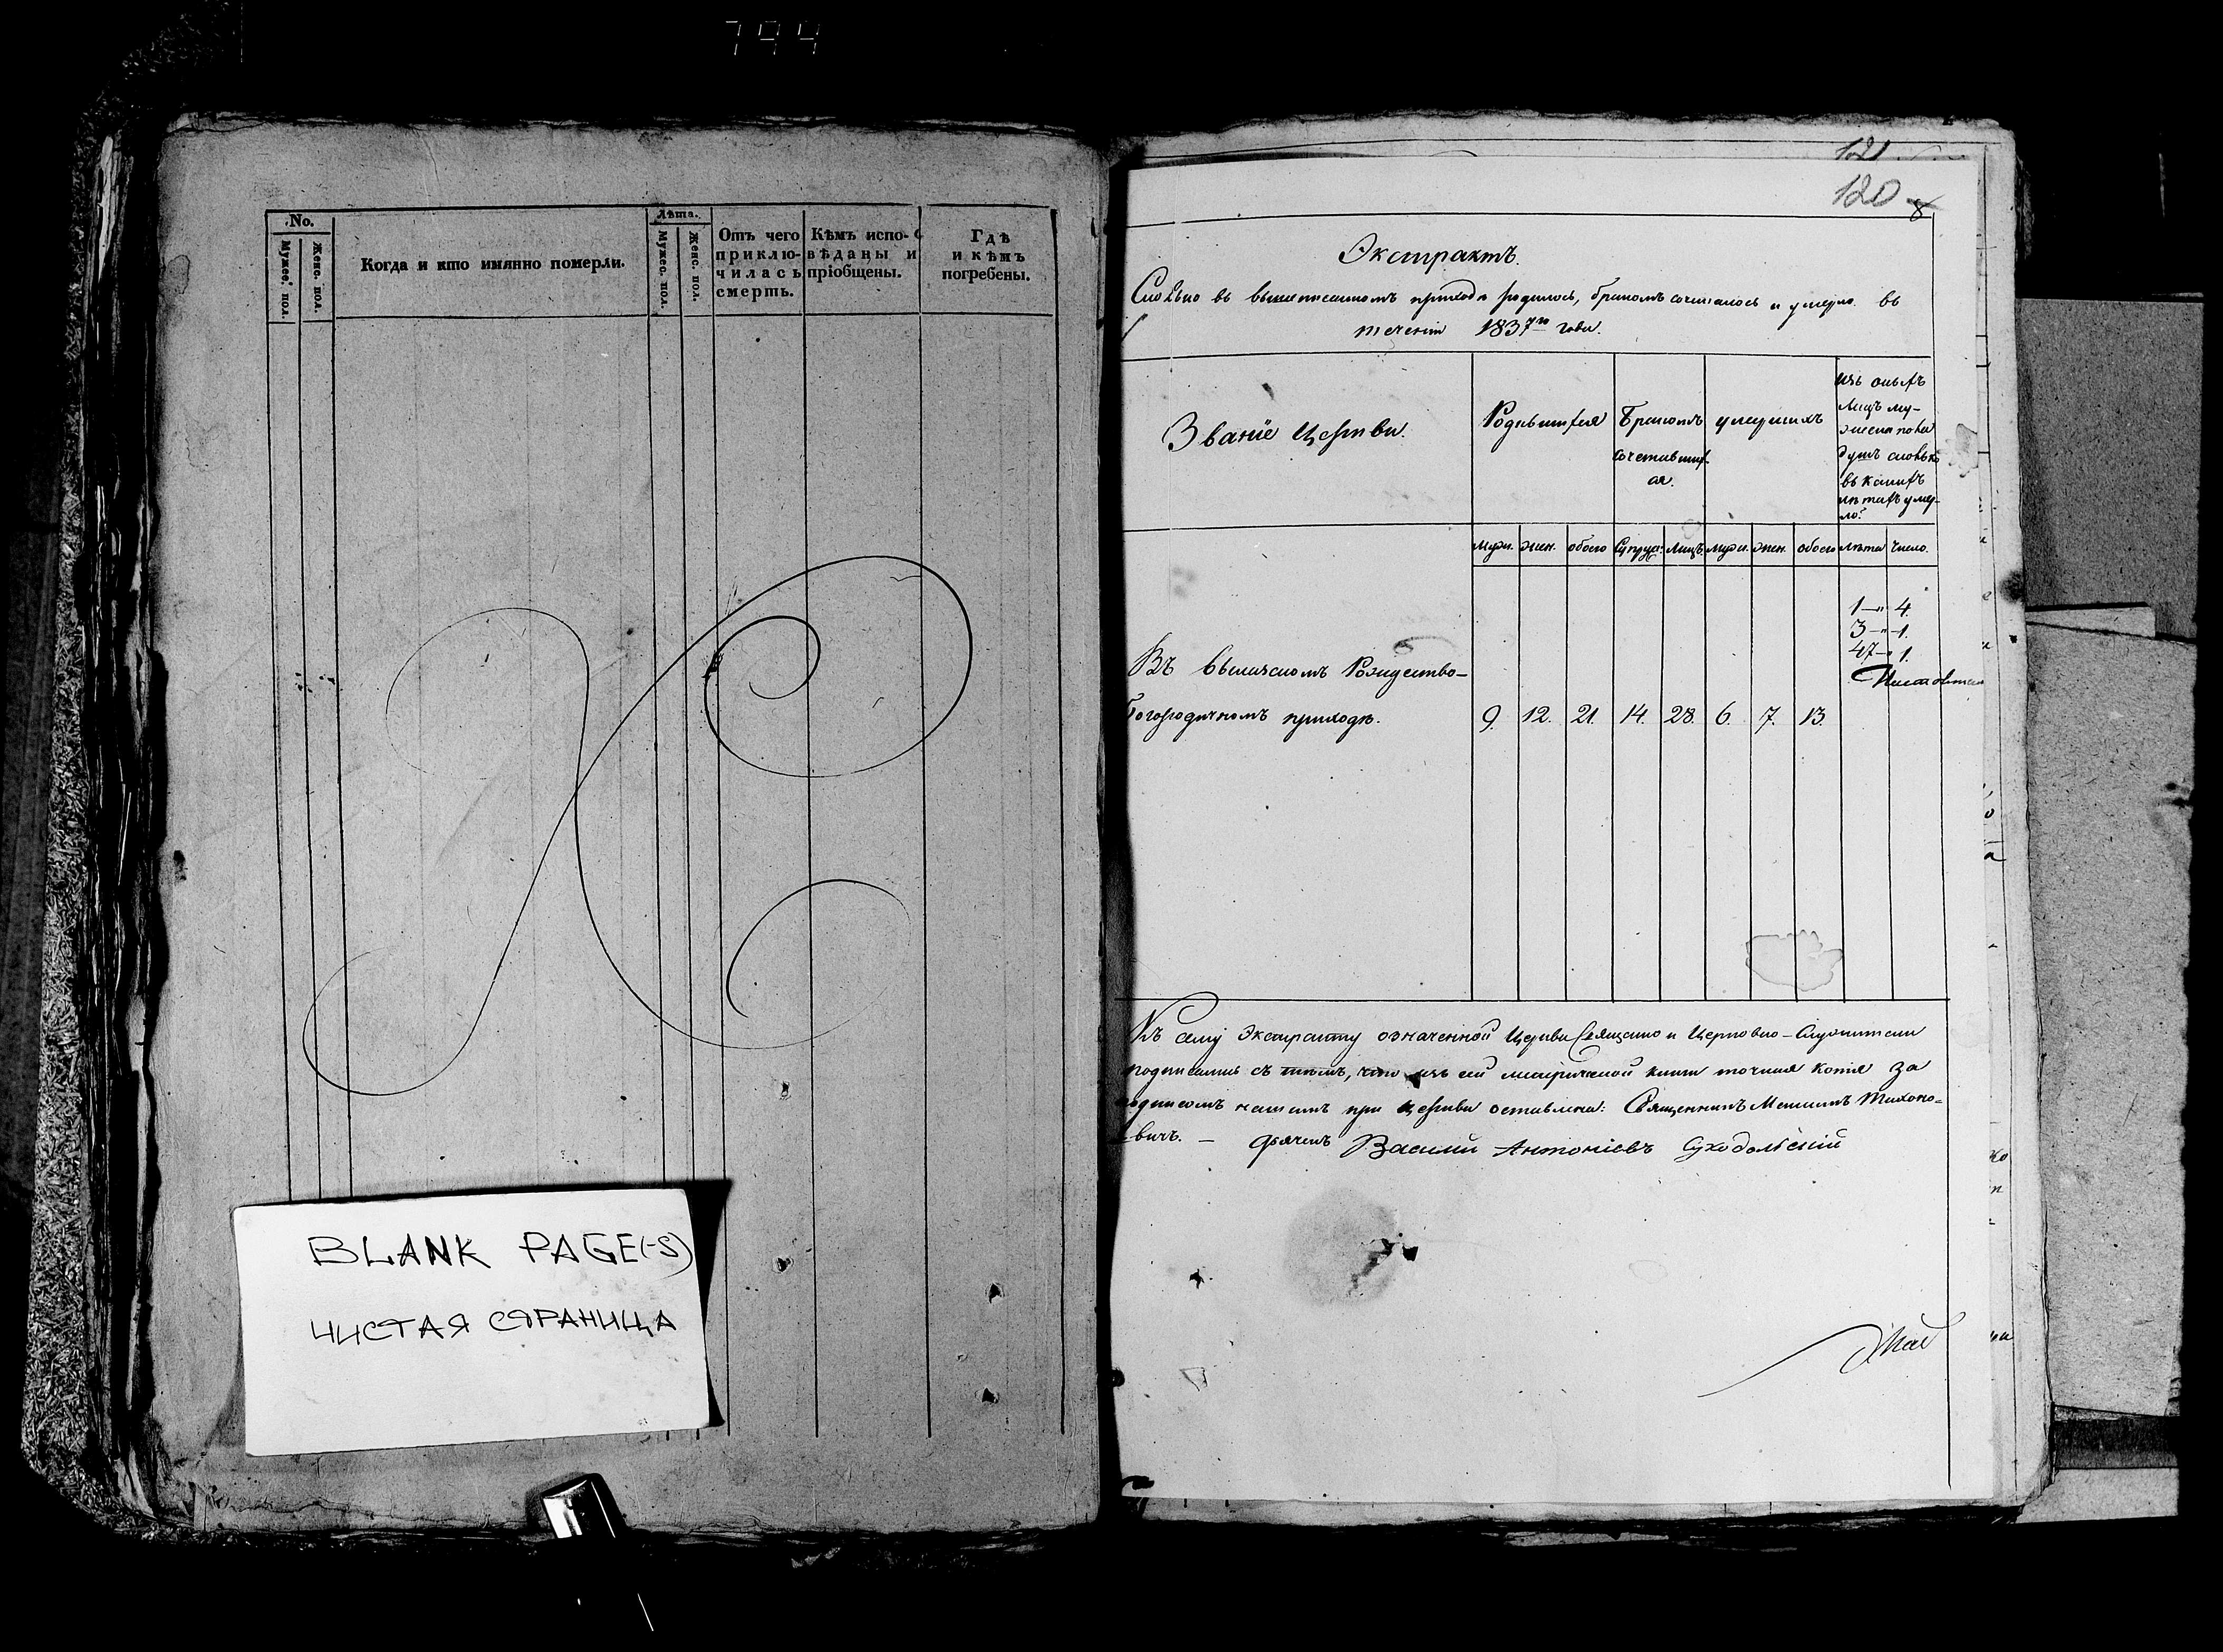 794
No.
Мужес. пол.
Женс. пол.
Когда и кто имянно померли.
Лѣта.
Мужес. пол.
Женс. пол.
Отъ чего
приклю-
чилась
смерть.
Кѣмъ испо-
вѣданы и
пріобщены.
Гдѣ
и кѣмъ
погребены.
BLANK PAGE(-S)
ЧИСТАЯ СТРАНИЦА
121
120
8
Экстрактъ.
Сколько въ вышеписанномъ приходѣ родилось, бракомъ сочеталось и умерло въ
теченіи 1837го года.
Званіе Церкви.
Родившихся
Бракомъ
сочетавших-
ся.
умершихъ
Изъ оныхъ
лицъ му-
жеска пола
душъ сколько
въ какихъ
лѣтахъ умер-
ло?
муж. жен. обоего Супруж. Лицъ. муж. жен. обоего лѣта число.
1 —"— 4.
3 —"— 1.
47 —"— 1.
Въ Рождество-
Богородичномъ приходѣ. 9. 12. 21. 14. 28. 6. 7. 13.
Къ сему Экстракту означенной Церкви Священно и Церковно-Служители
подписались съ тѣмъ, что изъ сей метрической книги точная копія за
подписомъ нашимъ при церкви оставлена: Священникъ Тихоно-
вичъ. — Дьячекъ Василій Антоніевъ Суходольскій